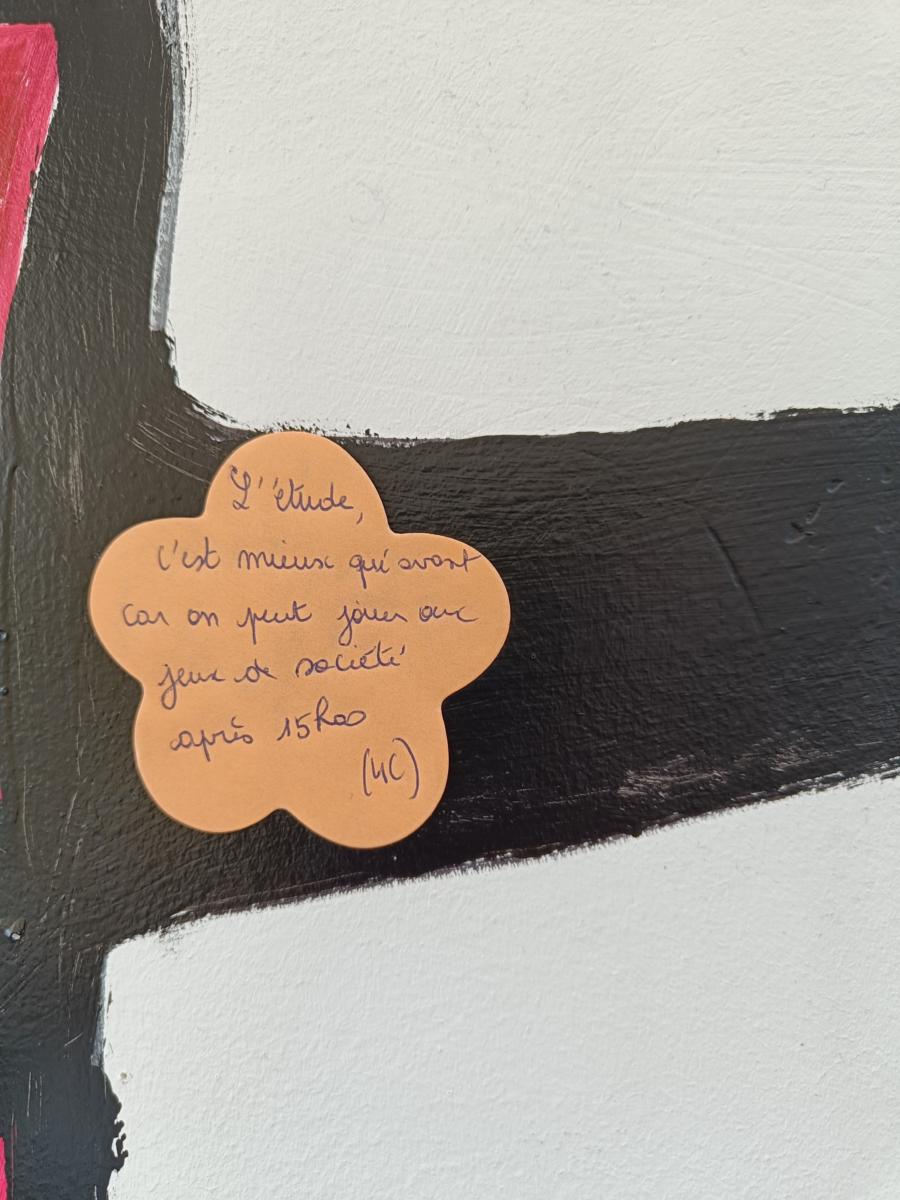 L'étude,
c'est mieux qu'avant
car on peut jouer aux
jeux de société
après 15h00
(4C)